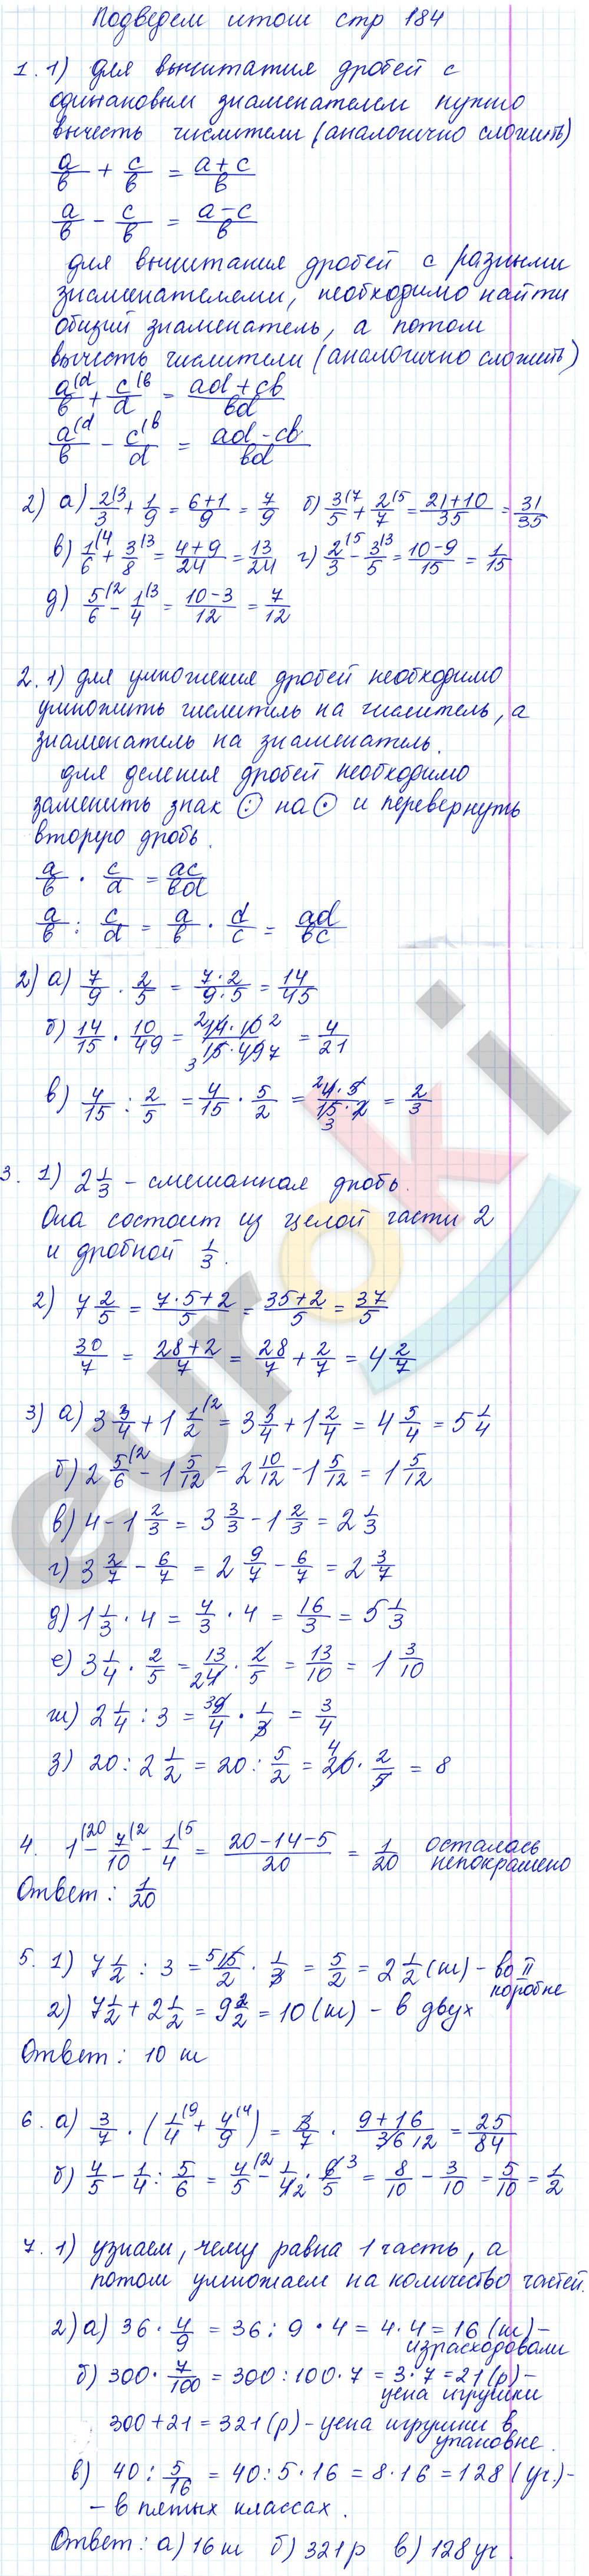 Подведем итоги стр 184
1. 1) для вычитания дробей с
одинаковым знаменателем нужно
вычесть числители (аналогично сложить)
a/b + c/b = (a+c)/b
a/b − c/b = (a−c)/b
для вычитания дробей с разными
знаменателеми, необходимо найти
общий знаменатель, а потом
вычесть числители (аналогично сложить)
a(d/b + c(b/d = (ad+cb)/bd
a(d/b − c(b/d = (ad−cb)/bd
2) а) 2(3/3 + 1/9 = (6+1)/9 = 7/9 б) 3(7/5 + 2(5/7 = (21+10)/35 = 31/35
в) 1(4/6 + 3(3/8 = (4+9)/24 = 13/24 г) 2(5/3 − 3(3/5 = (10−9)/15 = 1/15
д) 5(2/6 − 1(3/4 = (10−3)/12 = 7/12
2. 1) для умножения дробей необходимо
умножить числитель на числитель, а
знаменатель на знаменатель.
для деления дробей необходимо
заменить знак (:) на (·) и перевернуть
вторую дробь.
a/b · c/d = ac/bd
a/b : c/d = a/b · d/c = ad/bc
2) а) 7/9 · 2/5 = (7·2)/(9·5) = 14/45
б) 14/15 · 10/49 = 2 (14·10) 2 / 3 (15·49) 7 = 4/21
в) 4/15 : 2/5 = 4/15 · 5/2 = 2 (4·5) / (15·2) 3 = 2/3
3. 1) 2 1/3 – смешанная дробь.
Она состоит из целой части 2
и дробной 1/3.
2) 7 2/5 = (7·5+2)/5 = (35+2)/5 = 37/5
30/7 = (28+2)/7 = 28/7 + 2/7 = 4 2/7
3) а) 3 3/4 + 1 1(2/2 = 3 3/4 + 1 2/4 = 4 5/4 = 5 1/4
б) 2 5(2/6 − 1 5/12 = 2 10/12 − 1 5/12 = 1 5/12
в) 4 − 1 2/3 = 3 3/3 − 1 2/3 = 2 1/3
г) 3 2/7 − 6/7 = 2 9/7 − 6/7 = 2 3/7
д) 1 1/3 · 4 = 4/3 · 4 = 16/3 = 5 1/3
е) 3 1/4 · 2/5 = 13/2 4 · 2/5 = 13/10 = 1 3/10
ж) 2 1/4 : 3 = 3 9/4 · 1/3 = 3/4
з) 20 : 2 1/2 = 20 : 5/2 = 4 20 · 2/5 = 8
4. 1(20 − 7(2/10 − 1(5/4 = (20−14−5)/20 = 1/20 осталась
непокрашено
Ответ: 1/20
5. 1) 7 1/2 : 3 = 5 15/2 · 1/3 = 5/2 = 2 1/2 (т) – во II
коробке
2) 7 1/2 + 2 1/2 = 9 2/2 = 10 (т) – в двух
Ответ: 10 т
6. а) 3/7 · (1(9/4 + 4(4/9) = 3/7 · (9+16)/36 12 = 25/84
б) 4/5 − 1/4 : 5/6 = 4(2/5 − 1/4 2 · 6 3/5 = 8/10 − 3/10 = 5/10 = 1/2
7. 1) узнаем, чему равна 1 часть, а
потом умножаем на количество частей.
2) а) 36 · 4/9 = 36 : 9 · 4 = 4 · 4 = 16 (т) –
израсходовали
б) 300 · 7/100 = 300 : 100 · 7 = 3 · 7 = 21 (р) –
цена игрушки
300 + 21 = 321 (р) – цена игрушки в
упаковке.
в) 40 : 5/16 = 40 : 5 · 16 = 8 · 16 = 128 (уч.) –
– в пятых классах.
Ответ: а) 16 т б) 321 р в) 128 уч.
euroki